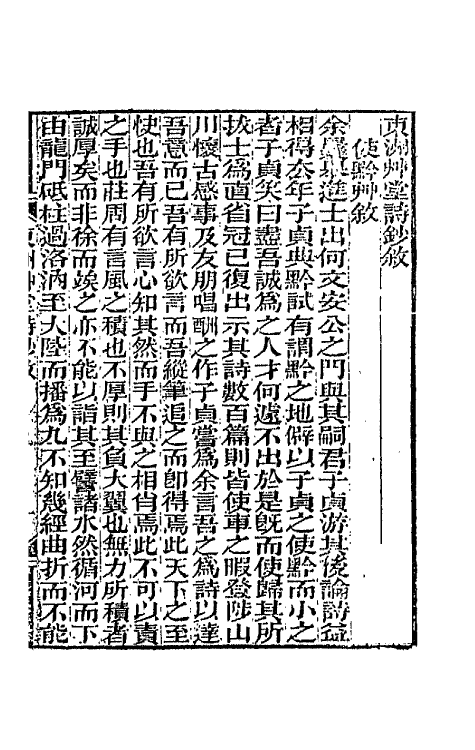 東洲艸堂詩鈔敘
使黔艸敘
余曩舉進士出何文安公之門與其嗣君子貞游其後論詩益
相得去年子貞典黔試有謂黔之地僻以子貞之使黔而小之
者子貞笑曰盡吾誠為之人才何遽不出於是旣而使歸其所
拔士為直省冠已復出示其詩數百篇則皆使車之暇登陟山
川懷古感事及友朋唱酬之作子貞嘗為余言吾之為詩以達
吾意而已吾有所欲言而吾縱筆追之而卽得焉此天下之至
快也吾有所欲言心知其然而手不與之相肖焉此不可以責
之手也莊周有言風之積也不厚則其負大翼也無力所積者
誠厚矣而非徐而竢之亦不能以詣其至譬諸水然循河而下
由龍門砥柱過洛汭至大陸而播為九不知幾經曲折而不能